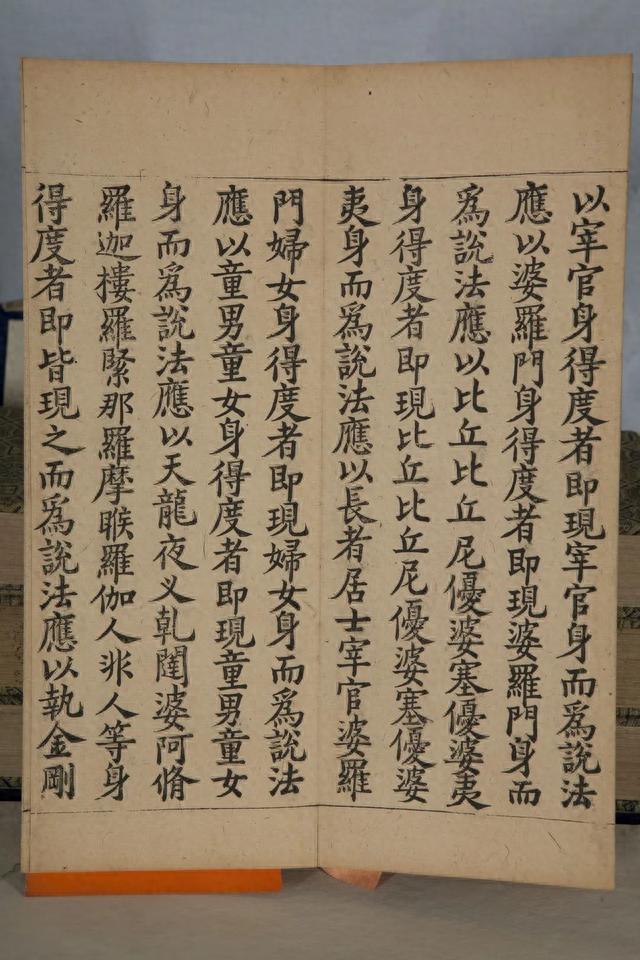 以宰官身得度者即現宰官身而爲說法
應以婆羅門身得度者即現婆羅門身而
爲說法應以比丘比丘尼優婆塞優婆夷
身得度者即現比丘比丘尼優婆塞優婆
夷身而爲說法應以長者居士宰官婆羅
門婦女身得度者即現婦女身而爲說法
應以童男童女身得度者即現童男童女
身而爲說法應以天龍夜叉乹闥婆阿脩
羅迦樓羅緊那羅摩睺羅伽人非人等身
得度者即皆現之而爲說法應以執金剛